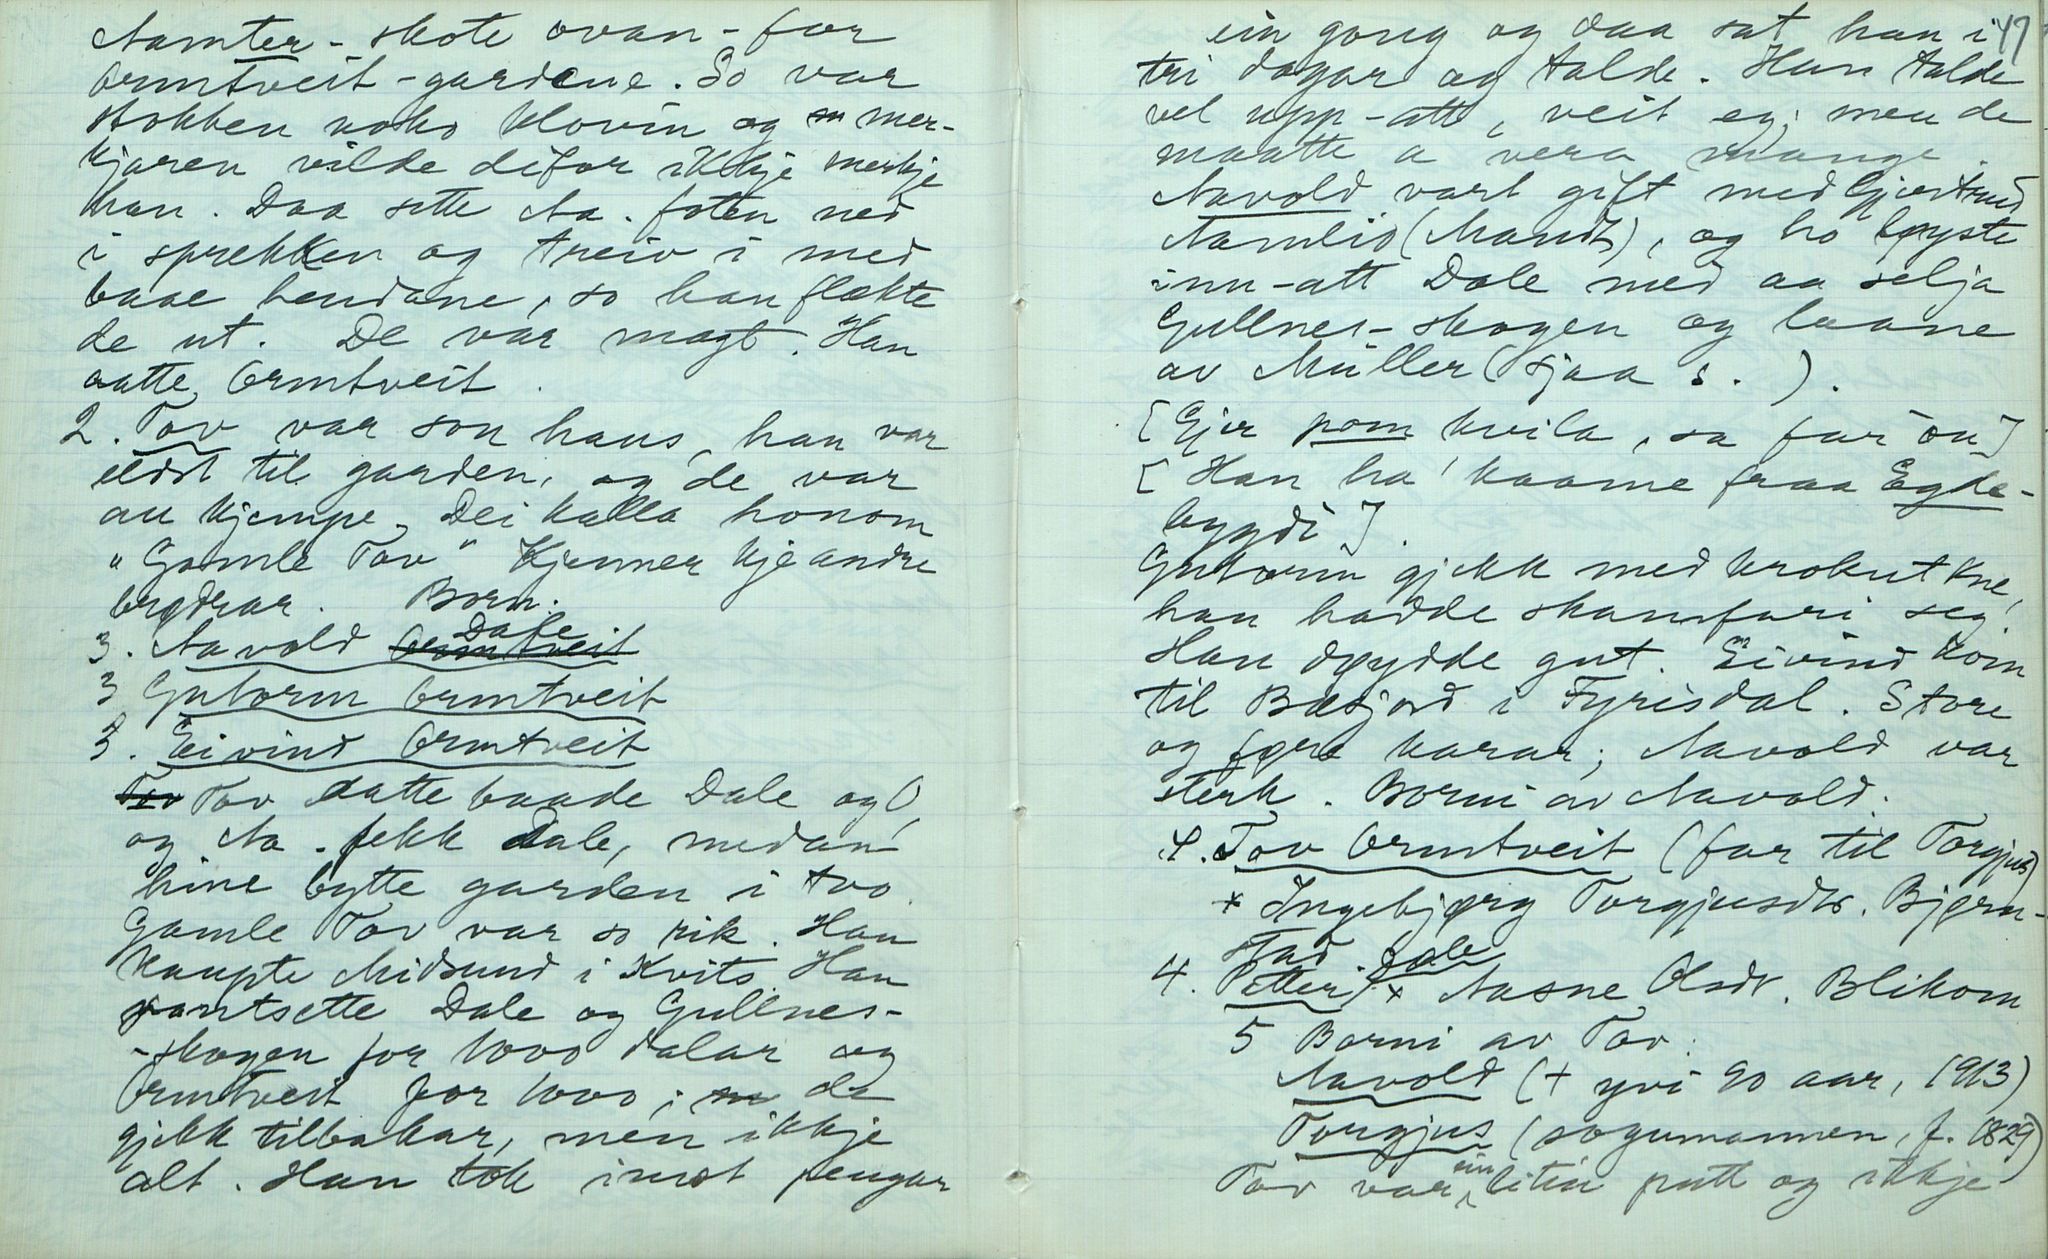 Aamter-skote ovan-for
Ormtveit-gardene. So var
stokken noko kloven og mer-
kjaren vilde difor ikkje merkje
han. Daa sette Aa. foten ned
i sprekken og treiv i med
baae hendane, so han flekte
de ut. De var magt. Han
aatte Ormtveit.
2. Tov var son hans, han var
eldst til garden, og de var
au kjempe. Dei kalla honom
"Gamle Tov" Kjenner kje andre
brødrar. Born:
3. Aavold Dale
3 Gutorm Ormtveit
3. Eivind Ormtveit
Tov aatte baade Dale og O,
og Aa. fekk Dale, medan
hine bytte garden i tvo
Gamle Tov var so rik. Han
kaupte Midsund i Kvits. Han
pantsette Dale og Gullnes-
-skogen for 1000 dalar og
Ormtveit for 1000; de
gjekk tilbakar, men ikkje
alt. Han tok imot pengar
47
ein gong og daa sat han i
tri dagar og talde. Han talde
vel upp-att, veit eg; men de
maatte a vera mange.
Aavold vart gift med Gjertrud
Aamlid (Mandt), og ho løyste
inn-att Dale med aa selja
Gullnes-skogen og laane
av Müller (sjaa s. ).
[Gjer pom kvila, sa far on]
[Han ha' kaame fraa Egde-
bygdi].
Gutorm gjekk med krokut kne,
han hadde skamfari seg.
Han døydde gut. Eivind kom
til Bæsjord i Fyrisdal. Store
og føre karar; Aavold var
sterk. Borni av Aavold:
4. Tov Ormtveit (far til Torgjus)
x Ingebjørg Torgjusdtr. Bjørn-
stad
4. Petter Dale x Aasne Olsdr. Blikom
5 Borni av Tov:
Aavold (+ yvi 90 aar, 1913)
Torgjus (sogumannen, f. 1829)
Tov var ein liten putt og ikkje